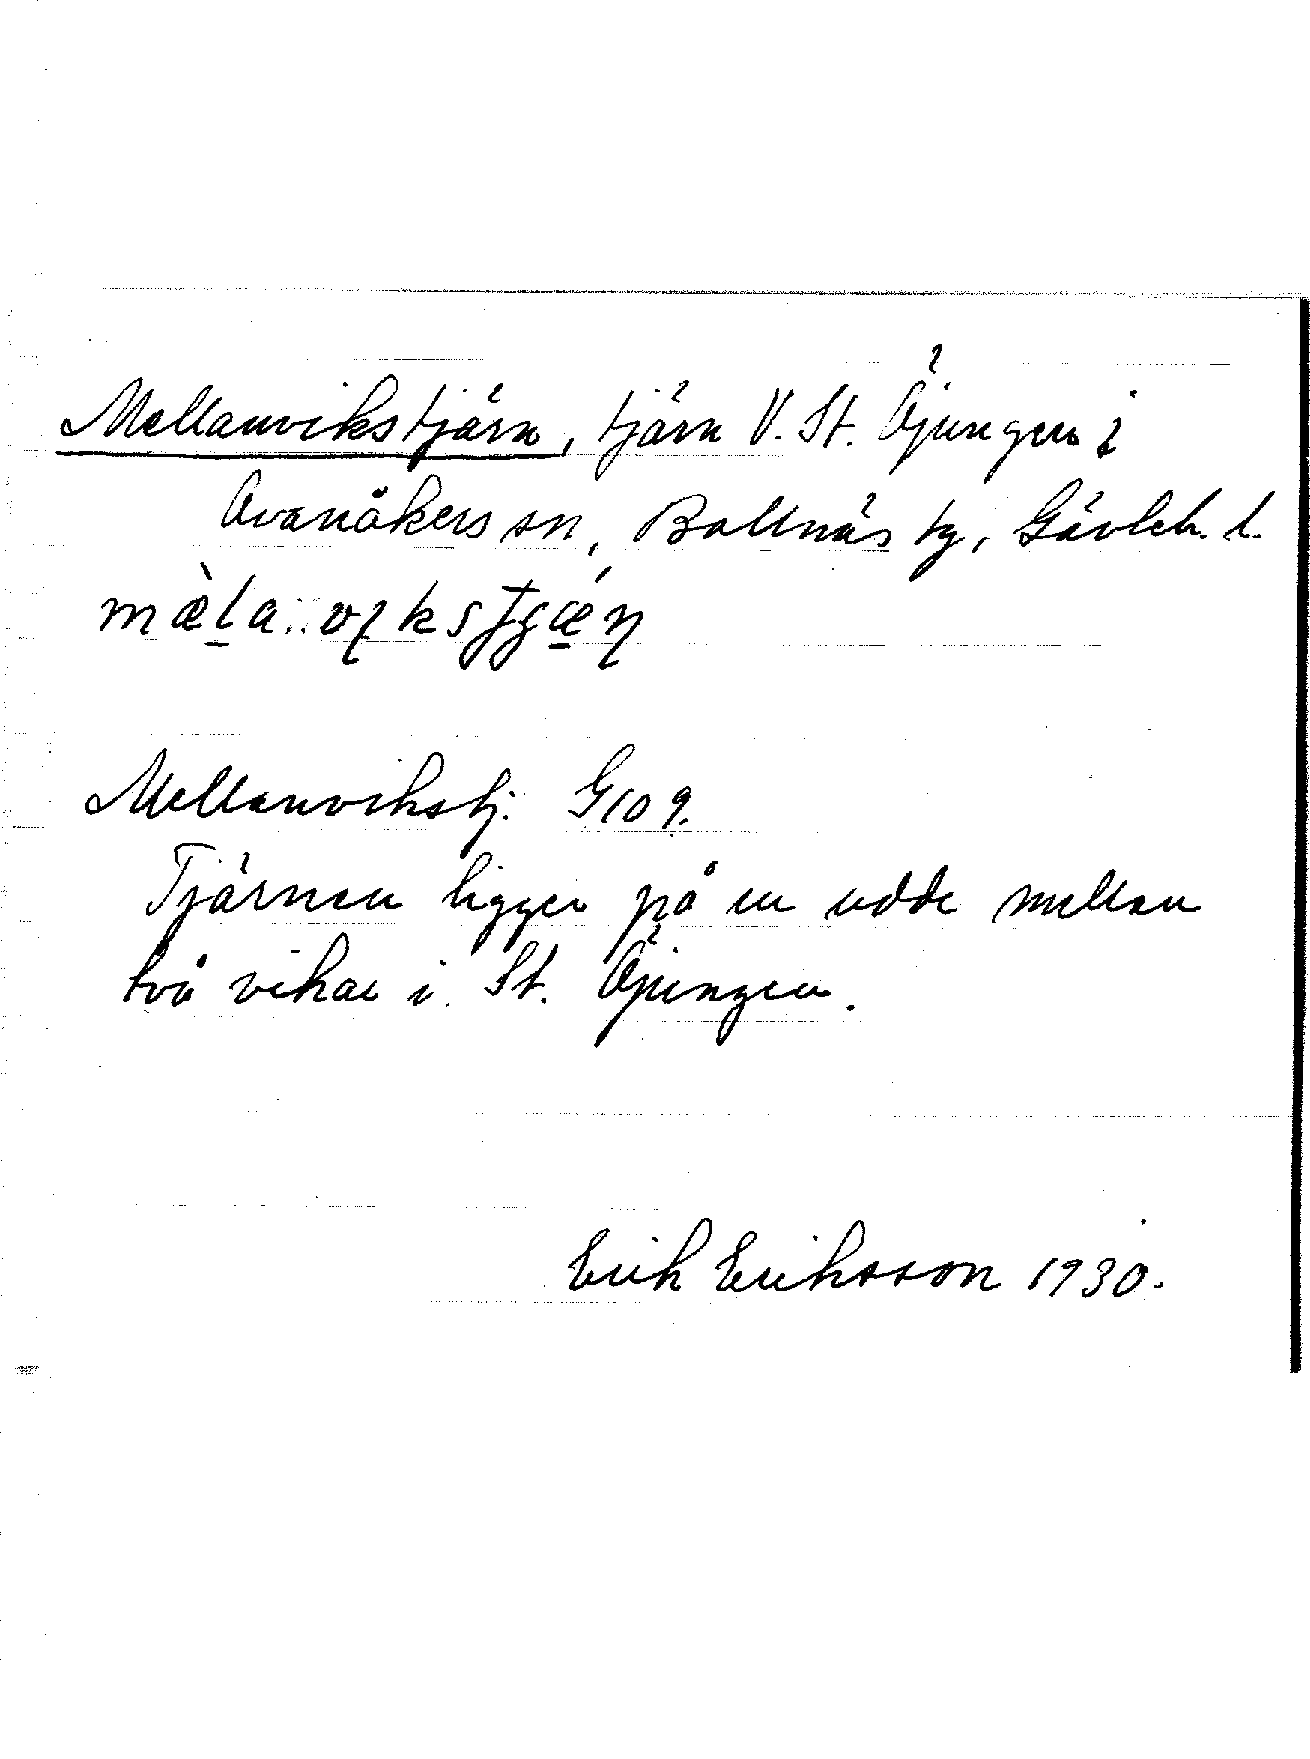 Mellanvikstjärn, tjärn V. St. Öjungen i
Ovanåkers sn, Bollnäs tg, Gävleb. l.
Mellanvikstj. G109.
Tjärnen ligger på en udde mellan
två vikar i St. Öjungen.
Erik Eriksson 1930.